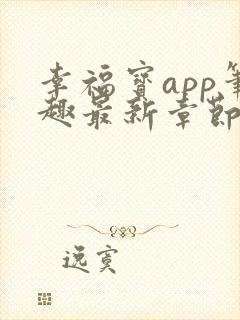 幸福宝app笔
趣最新章节
逸宾